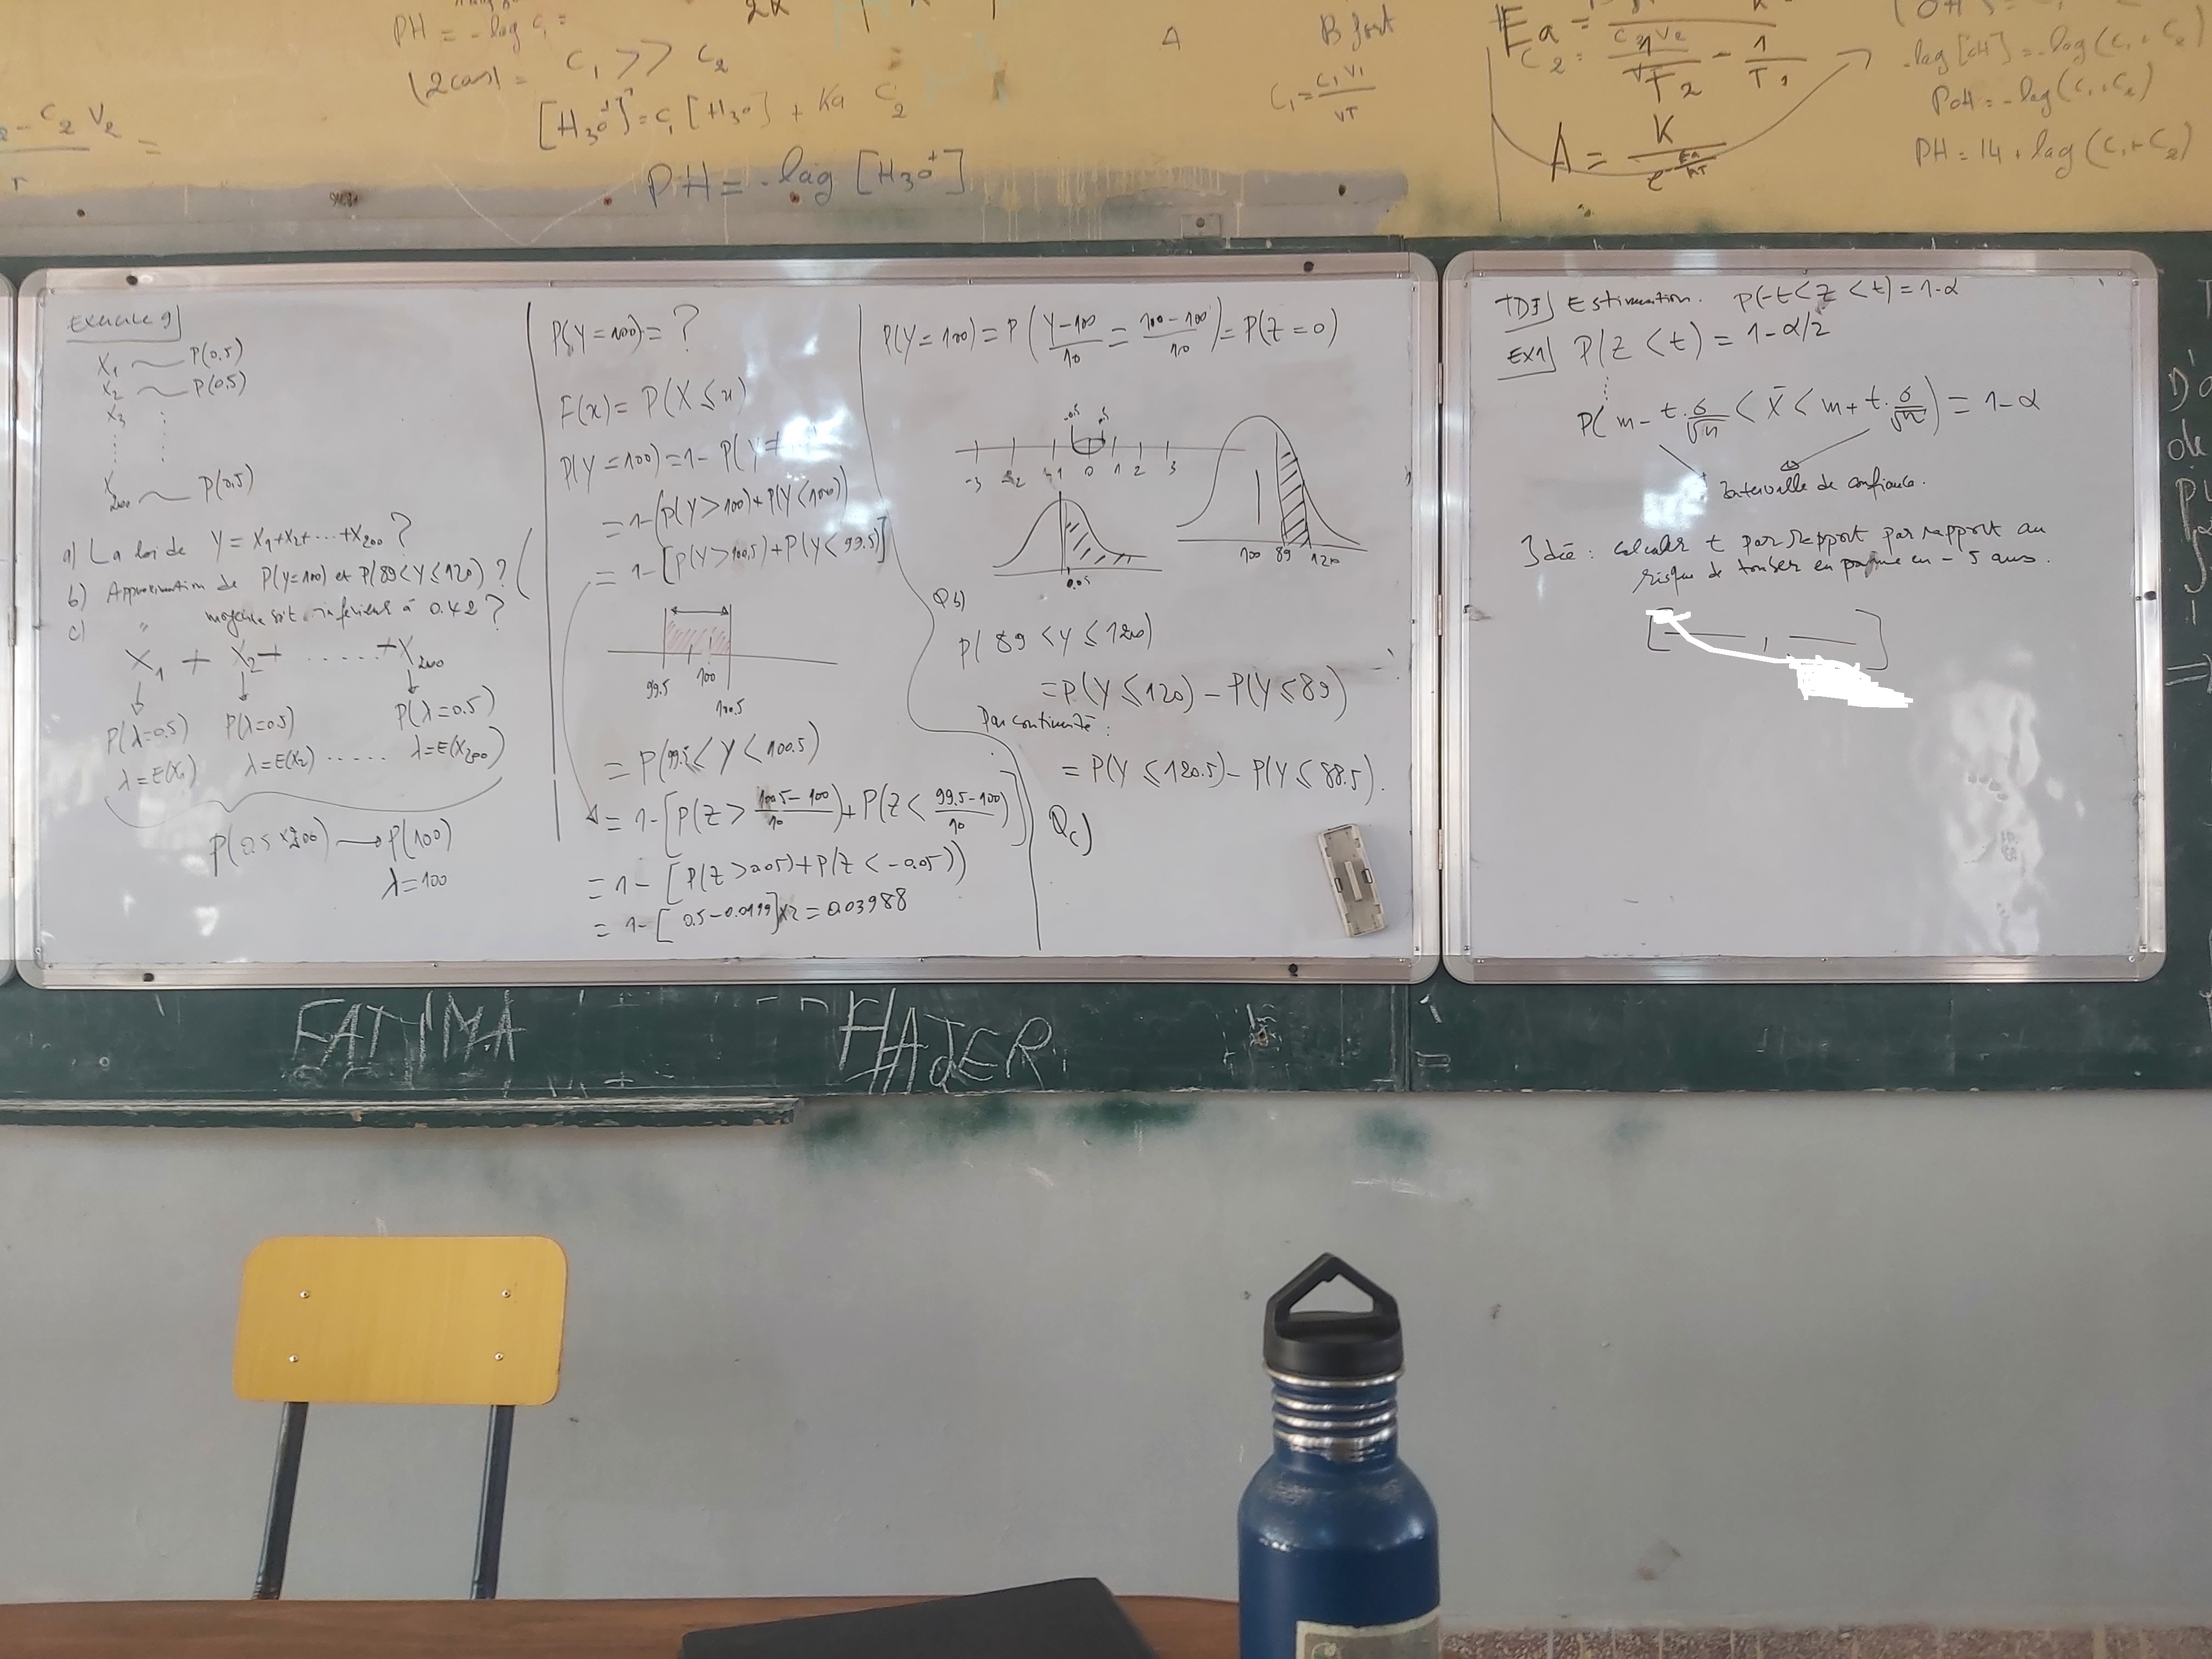 PH = -log C₁ =
(2cas) = C₁ >> C₂
[H₃O⁺] = C₁ [H₃O] + Ka C₂
PH = -log [H₃O⁺]
- C₂ V₂ =
A
B fort
C₁ = C₁V₁ / VT
Ea =
C₂ = C₂V₂
1/T₂ - 1/T₁
A = K / e^(-Ea/RT)
-log[OH] = -log(C₁ + C₂)
POH = -log(C₁ + C₂)
PH = 14 + log(C₁ + C₂)
Exercice 9)
X₁ ~ P(0.5)
X₂ ~ P(0.5)
X₃
X₂₀₀ ~ P(0.5)
a) La loi de Y = X₁+X₂+...+X₂₀₀ ?
b) Approximation de P(Y=100) et P(89<Y≤120) ?
c) " moyenne soit inférieur à 0.42 ?
X₁ + X₂ + ..... + X₂₀₀
P(λ=0.5) P(λ=0.5) P(λ=0.5)
λ=E(X₁) λ=E(X₂) ...... λ=E(X₂₀₀)
P(0.5×200) → P(100)
λ=100
P(Y=100) = ?
F(x) = P(X≤x)
P(Y=100) = 1- P(Y≠
= 1-(P(Y>100)+P(Y<100))
= 1-[P(Y>100.5)+P(Y<99.5)]
99.5 100 100.5
= P(99.5<Y<100.5)
= 1-[P(Z > (100.5-100)/10) + P(Z < (99.5-100)/10)]
= 1-[P(Z>0.05)+P(Z<-0.05))
= 1-[0.5-0.0199]×2 = 0.03988
P(Y=100) = P((Y-100)/10 = (100-100)/10) = P(Z=0)
-.5 .5
-3 -2 -1 0 1 2 3
0.05
100 89 120
Qb)
P(89<Y≤120)
= P(Y≤120) - P(Y≤89)
Par continuité :
= P(Y≤120.5) - P(Y≤88.5).
Qc)
TDI) Estimation. P(-t<Z<t) = 1-α
EX1) P(Z<t) = 1-α/2
P(m - t.σ/√n < X̄ < m + t.σ/√n) = 1-α
Intervalle de confiance.
Idée : calculer t par rapport par rapport au
risque de tomber en panne en - 5 ans.
[ , ]
FATIMA HAJER
D'a
de